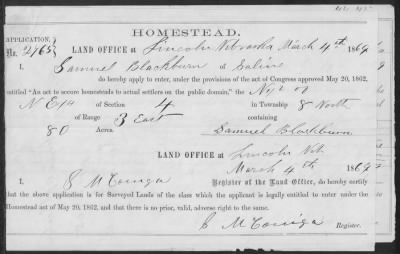 HOMESTEAD.
APPLICATION.
No. 2765
LAND OFFICE at Lincoln Nebraska March 4th 1869
I, Samuel Blackburn of Saline
do hereby apply to enter, under the provisions of the act of Congress approved May 20, 1862,
entitled "An act to secure homesteads to actual settlers on the public domain," the N ½ of
N E ¼ of Section 4 in Township 8 North
of Range 3 East containing
80 Acres.
Samuel Blackburn
LAND OFFICE at Lincoln Neb
March 4th 1869
I, S McConiga Register of the Land Office, do hereby certify
that the above application is for Surveyed Lands of the class which the applicant is legally entitled to enter under the
Homestead act of May 20, 1862, and that there is no prior, valid, adverse right to the same.
S McConiga Register.